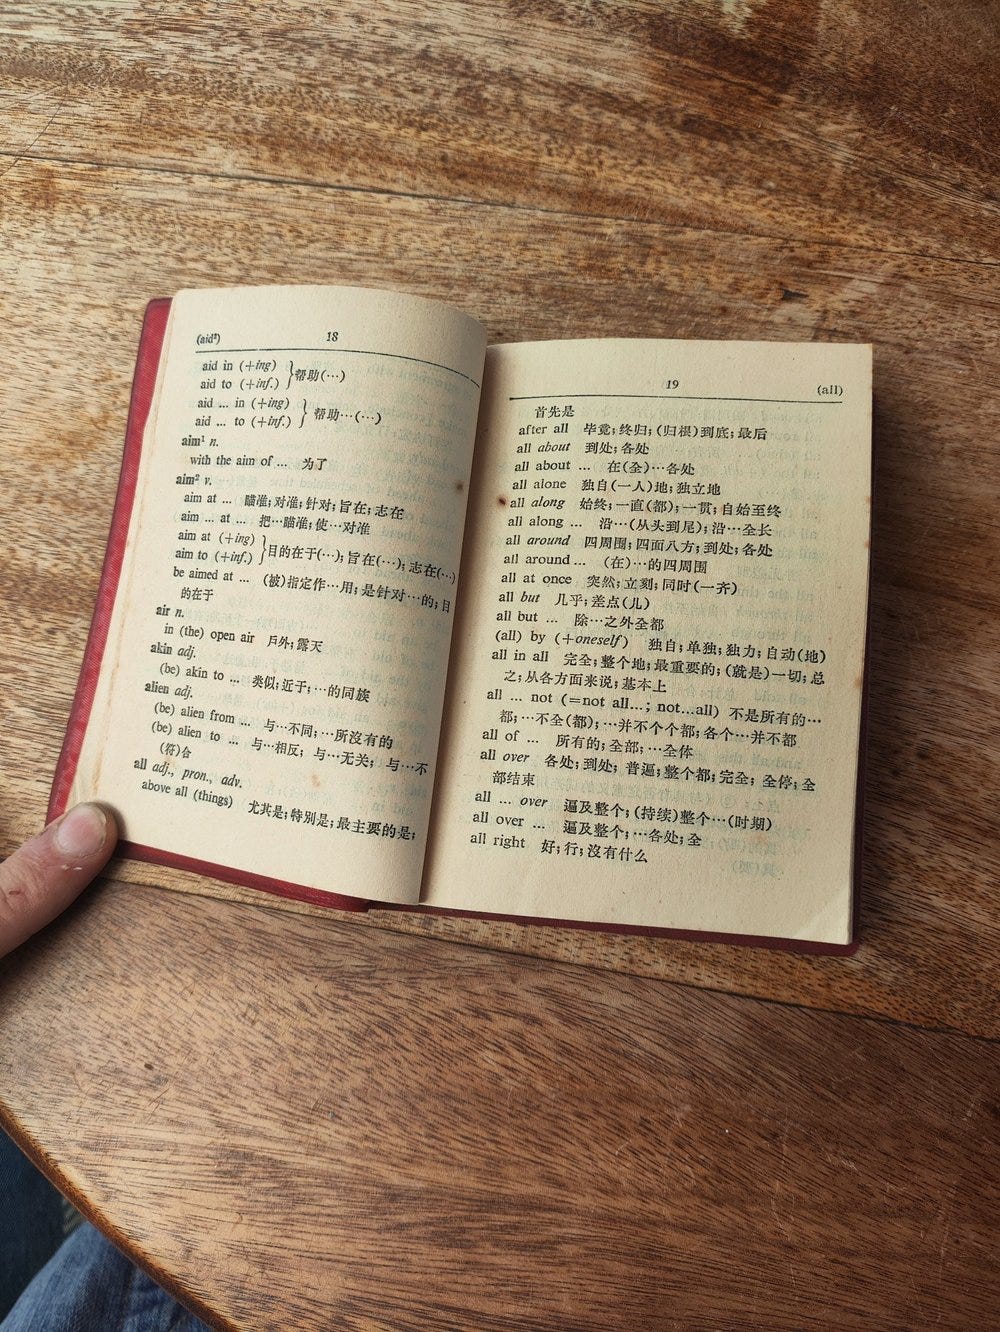 (aid²) 18
aid in (+ing)
aid to (+inf.) }帮助(…)
aid ... in (+ing)
aid ... to (+inf.) } 帮助…(…)
aim¹ n.
with the aim of ... 为了
aim² v.
aim at ... 瞄准;对准;针对;旨在;志在
aim ... at ... 把…瞄准;使…对准
aim at (+ing)
aim to (+inf.) }目的在于(…);旨在(…);志在(…)
be aimed at ... (被)指定作…用;是针对…的;目
的在于
air n.
in (the) open air 戶外;露天
akin adj.
(be) akin to ... 类似;近于;…的同族
alien adj.
(be) alien from ... 与…不同;…所沒有的
(be) alien to ... 与…相反;与…无关;与…不
(符)合
all adj., pron., adv.
above all (things) 尤其是;特別是;最主要的是;
19 (all)
首先是
after all 毕竟;终归;(归根)到底;最后
all about 到处;各处
all about ... 在(全)…各处
all alone 独自(一人)地;独立地
all along 始终;一直(都);一贯;自始至终
all along ... 沿…(从头到尾);沿…全长
all around 四周围;四面八方;到处;各处
all around ... (在)…的四周围
all at once 突然;立刻;同时(一齐)
all but 几乎;差点(儿)
all but ... 除…之外全都
(all) by (+oneself) 独自;单独;独力;自动(地)
all in all 完全;整个地;最重要的;(就是)一切;总
之;从各方面来说;基本上
all ... not (=not all...; not...all) 不是所有的…
都;…不全(都);…并不个个都;各个…并不都
all of ... 所有的;全部;…全体
all over 各处;到处;普遍;整个都;完全;全停;全
部结束
all ... over 遍及整个;(持续)整个…(时期)
all over ... 遍及整个;…各处;全
all right 好;行;沒有什么